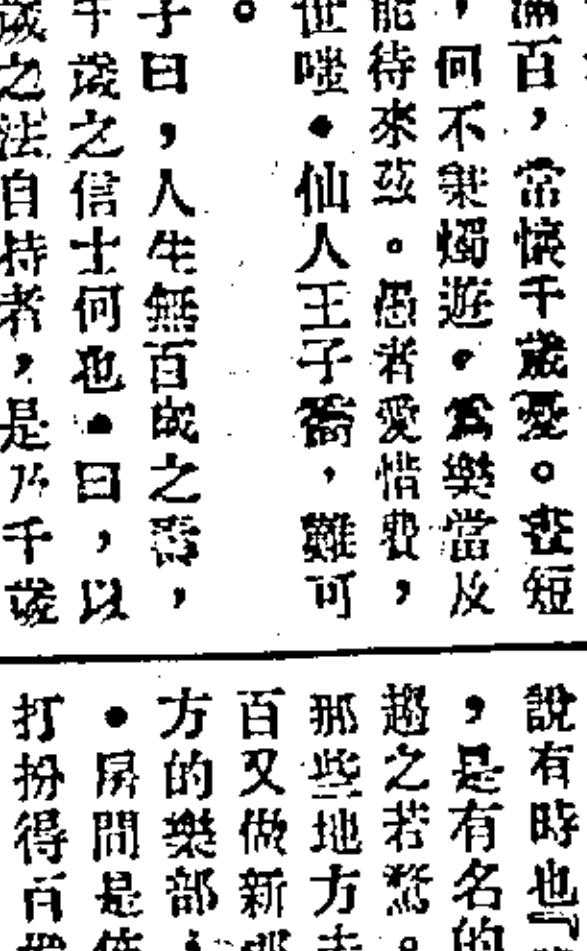 滿百，當懷千歲憂。晝短
，何不秉燭遊。為樂當及
能待來茲。愚者愛惜費，
世嗤。仙人王子喬，難可
。
子曰，人生無百歲之壽，
千歲之信士何也。曰，以
歲之法自持者，是乃千歲
說有時也「
，是有名的
趨之若鶩。
那些地方
百又做新
方的樂部
。房間是
打扮得